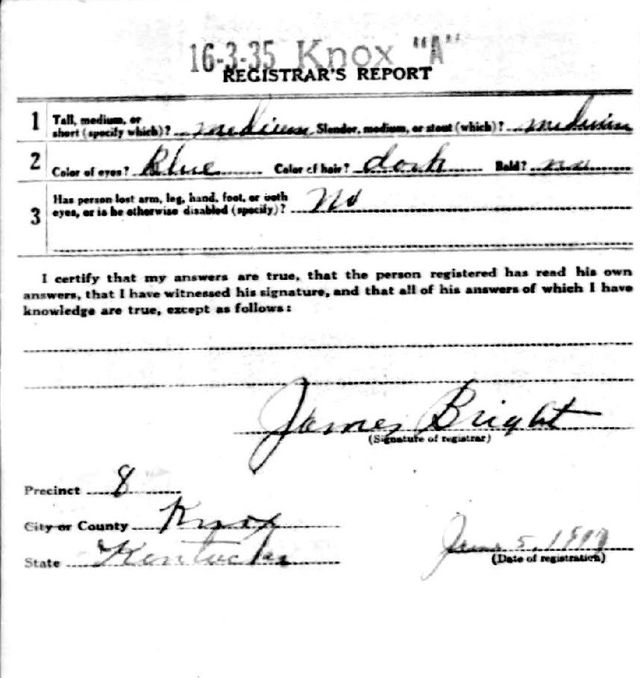 16-3-35 Knox "A"
REGISTRAR'S REPORT
1 Tall, medium, or short (specify which)? medium Slender, medium, or stout (which)? medium
2 Color of eyes? Blue Color of hair? dark Bald? no
3 Has person lost arm, leg, hand, foot, or both eyes, or is he otherwise disabled (specify)? No
I certify that my answers are true, that the person registered has read his own
answers, that I have witnessed his signature, and that all of his answers of which I have
knowledge are true, except as follows:
James Bright
(Signature of registrar)
Precinct 8
City or County Knox
State Kentucky
June 5, 1917
(Date of registration)